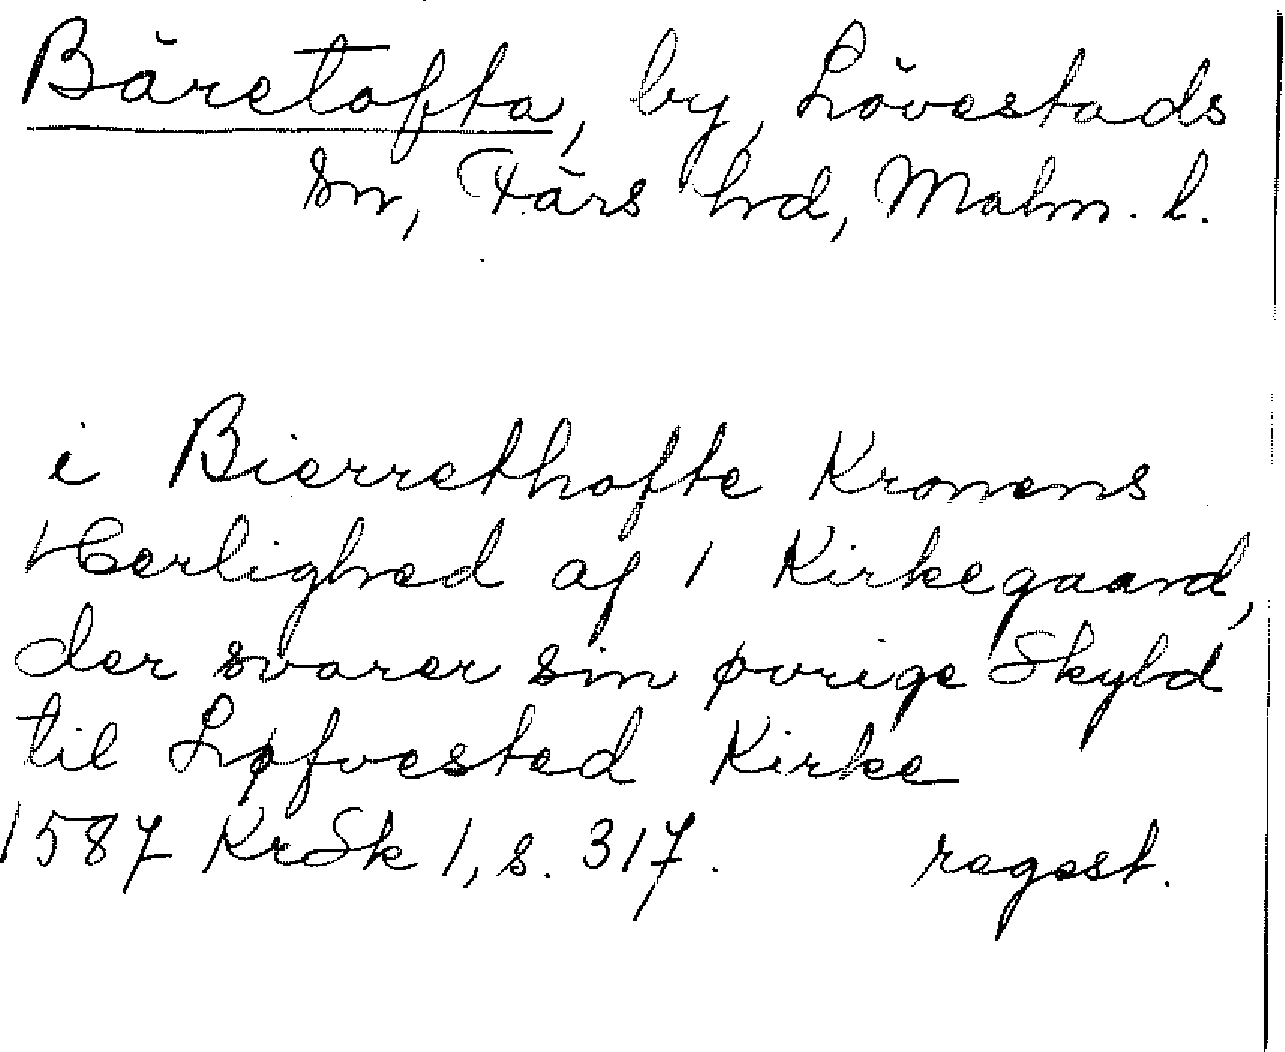 Bäretofta, by, Lövestads
sn, Färs hd, Malm. l.
i Bierrethofte Kronens
Herlighed af 1 Kirkegaard,
der svarer sin øvrige Skyld
til Løfvested Kirke
1587 KrSk 1, s. 317. regest.